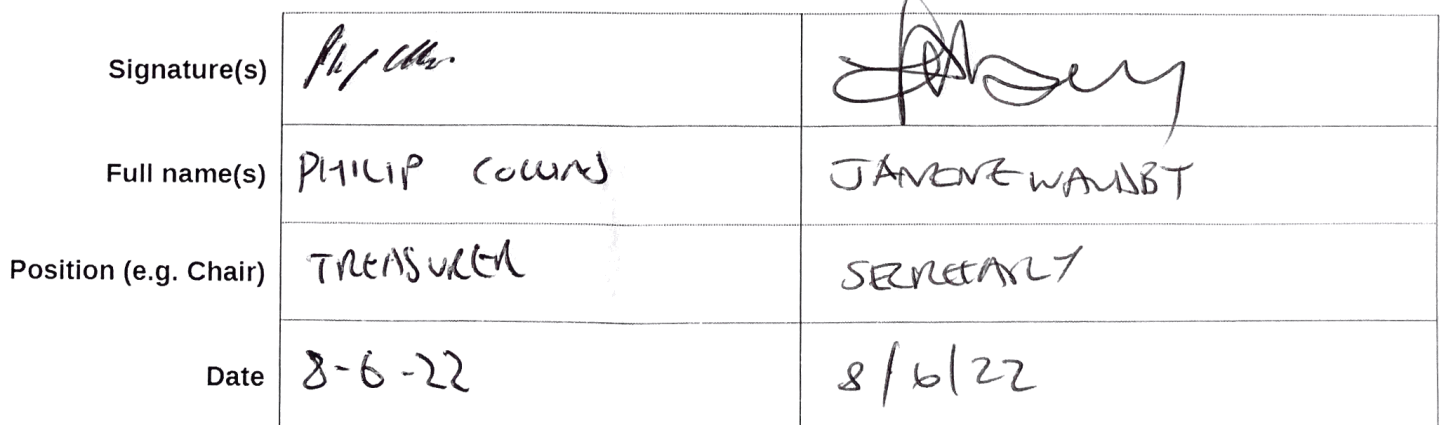 Signature(s)
Full name(s) PHILIP COLLINS JANENE
Position (e.g. Chair) TREASURER SECRETARY
Date 8-6-22 8/6/22